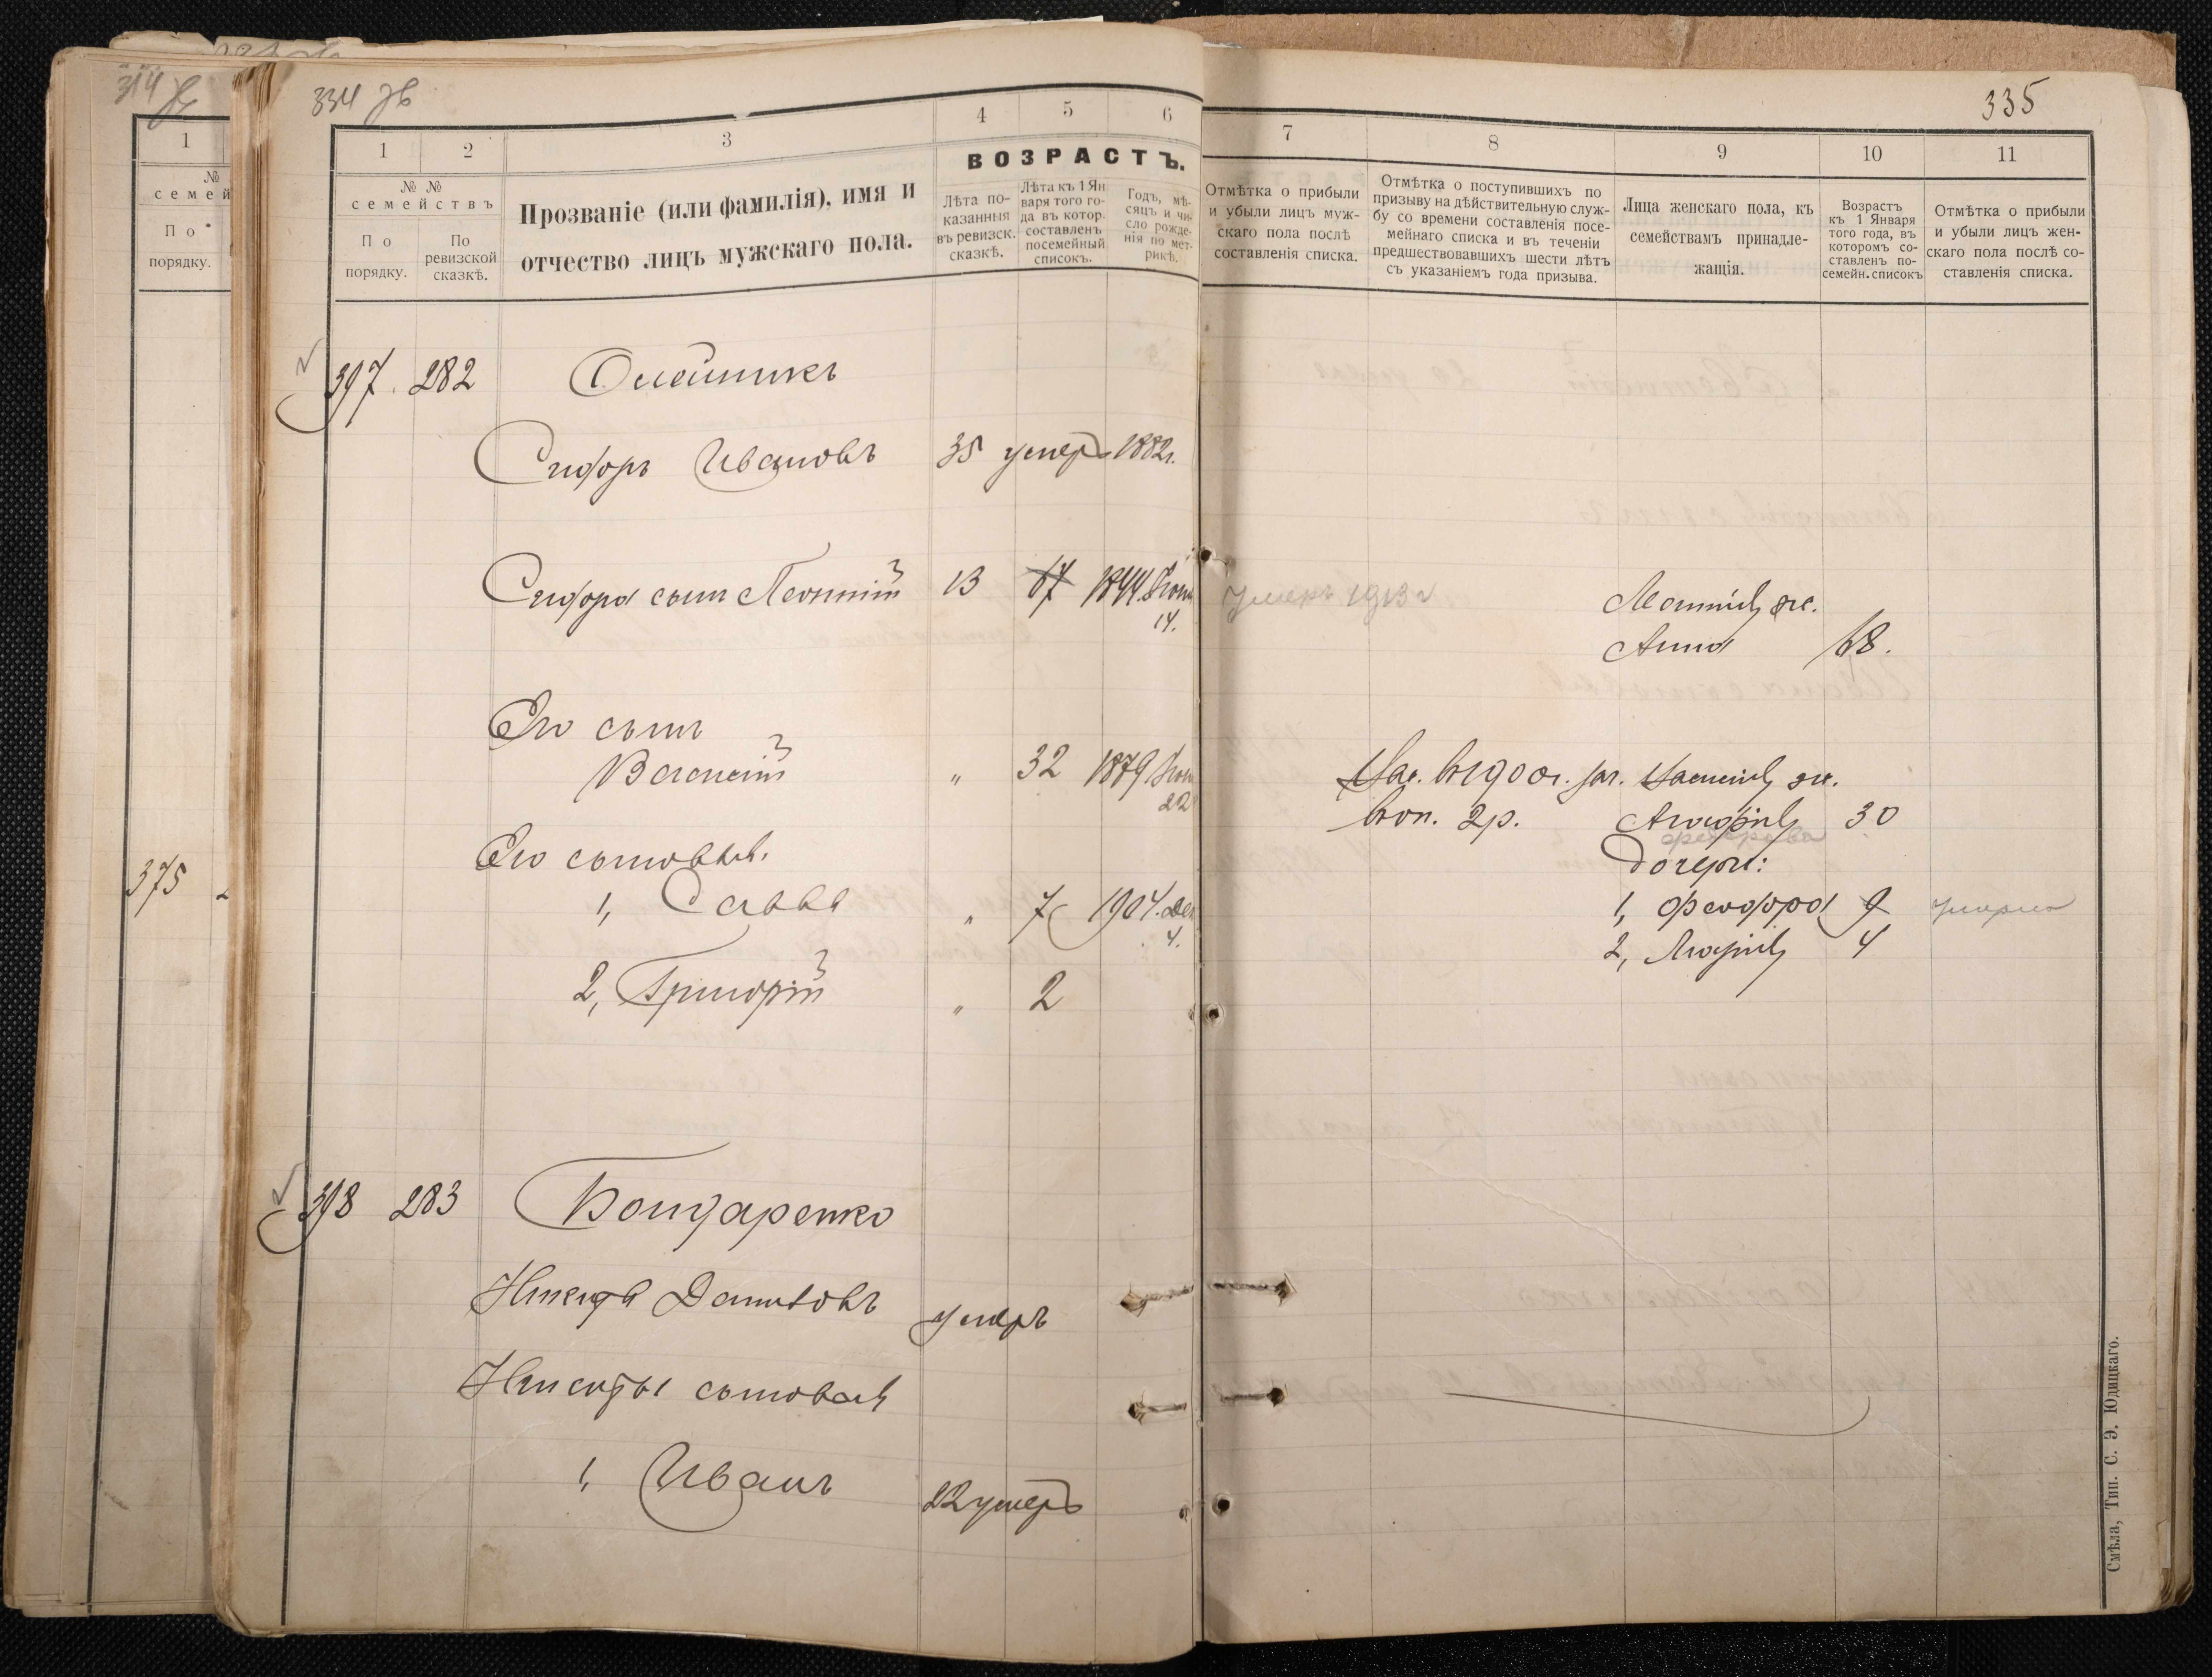 314
1
№
семей
По
порядку.
375
334 зв
1
2
3
4
5
6
№ №
семействъ
По
порядку.
По
ревизской
сказкѣ.
Прозваніе (или фамилія), имя и
отчество лицъ мужскаго пола.
ВОЗРАСТЪ.
Лѣта по-
казанныя
въ ревизск.
сказкѣ.
Лѣта къ 1 Ян
варя того го-
да въ котор.
составленъ
посемейный
списокъ.
Годъ, мѣ-
сяцъ и чи-
сло рожде-
нія по мет-
рикѣ.
397 282 Олейникъ
Сидоръ Ивановъ 35 умеръ 1882г.
Сидора сынъ Леонтій 13 67 1844
14.
Его сынъ
Василій " 32 1879
22
Его сыновья.
1, Савва " 7 1904. Дек
4.
2, Григорій " 2
398 283 Бондаренко
Никита Даниловъ умеръ
Никиты сыновья
1, Иванъ 22 умеръ
335
7
8
9
10
11
Отмѣтка о прибыли
и убыли лицъ муж-
скаго пола послѣ
составленія списка.
Отмѣтка о поступившихъ по
призыву на дѣйствительную служ-
бу со времени составленія посе-
мейнаго списка и въ теченіи
предшествовавшихъ шести лѣтъ
съ указаніемъ года призыва.
Лица женскаго пола, къ
семействамъ принадле-
жащія.
Возрастъ
къ 1 Января
того года, въ
которомъ со-
ставленъ по-
семейн. списокъ
Отмѣтка о прибыли
и убыли лицъ жен-
скаго пола послѣ со-
ставленія списка.
умеръ 1913 г Леонтія ж.
Анна 68.
въ 1900 г. зач. Василія ж.
в оп. 2 р. Агафія 30
Дочери:
1, Феодора 9 умерла
2, Марія 4
Смѣла, Тип. С. Э. Юдицкаго.